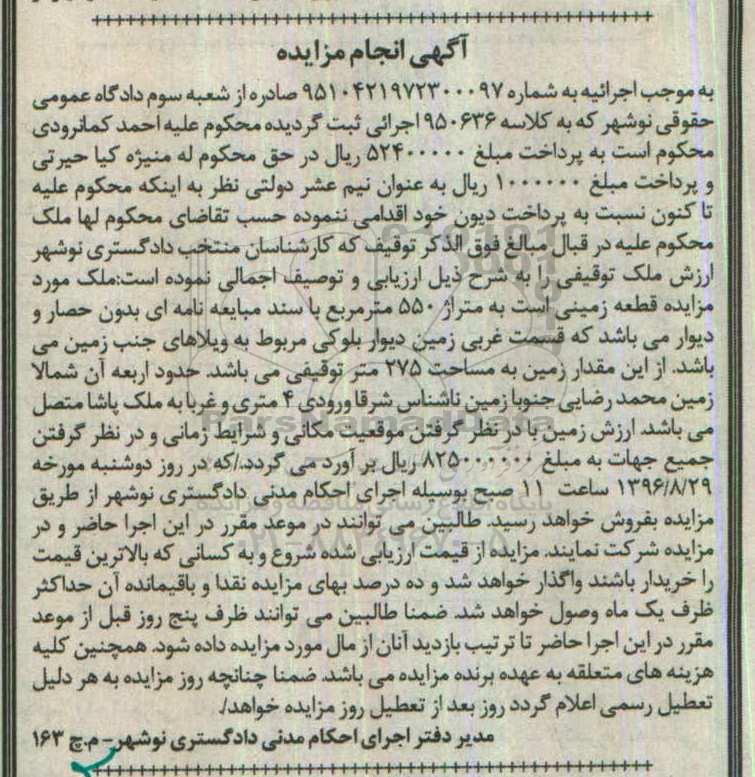 آگهی انجام مزایده
به موجب اجرائیه به شماره ۹۵۱۰۴۲۱۹۷۲۳۰۰۰۹۷ صادره از شعبه سوم دادگاه عمومی
حقوقی نوشهر که به کلاسه ۹۵۰۶۳۶ اجرائی ثبت گردیده محکوم علیه احمد کمانرودی
محکوم است به پرداخت مبلغ ۵۲۴۰۰۰۰۰ ریال در حق محکوم له منیژه کیا حیرتی
و پرداخت مبلغ ۱۰۰۰۰۰۰ ریال به عنوان نیم عشر دولتی نظر به اینکه محکوم علیه
تا کنون نسبت به پرداخت دیون خود اقدامی ننموده حسب تقاضای محکوم لها ملک
محکوم علیه در قبال مبالغ فوق الذکر توقیف که کارشناسان منتخب دادگستری نوشهر
ارزش ملک توقیفی را به شرح ذیل ارزیابی و توصیف اجمالی نموده است:ملک مورد
مزایده قطعه زمینی است به متراژ ۵۵۰ مترمربع با سند مبایعه نامه ای بدون حصار و
دیوار می باشد که قسمت غربی زمین دیوار بلوکی مربوط به ویلاهای جنب زمین می
باشد. از این مقدار زمین به مساحت ۲۷۵ متر توقیفی می باشد. حدود اربعه آن شمالا
زمین محمد رضایی جنوبا زمین ناشناس شرقا ورودی ۴ متری و غربا به ملک پاشا متصل
می باشد. ارزش زمین با در نظر گرفتن موقعیت مکانی و شرایط زمانی و در نظر گرفتن
جمیع جهات به مبلغ ۸۲۵۰۰۰۰۰۰ ریال بر آورد می گردد./که در روز دوشنبه مورخه
۱۳۹۶/۸/۲۹ ساعت ۱۱ صبح بوسیله اجرای احکام مدنی دادگستری نوشهر از طریق
مزایده بفروش خواهد رسید. طالبین می توانند در موعد مقرر در این اجرا حاضر و در
مزایده شرکت نمایند. مزایده از قیمت ارزیابی شده شروع و به کسانی که بالاترین قیمت
را خریدار باشند واگذار خواهد شد و ده درصد بهای مزایده نقدا و باقیمانده آن حداکثر
ظرف یک ماه وصول خواهد شد. ضمنا طالبین می توانند ظرف پنج روز قبل از موعد
مقرر در این اجرا حاضر تا ترتیب بازدید آنان از مال مورد مزایده داده شود. همچنین کلیه
هزینه های متعلقه به عهده برنده مزایده می باشد. ضمنا چنانچه روز مزایده به هر دلیل
تعطیل رسمی اعلام گردد روز بعد از تعطیل روز مزایده خواهد/.
مدیر دفتر اجرای احکام مدنی دادگستری نوشهر- م.چ ۱۶۳